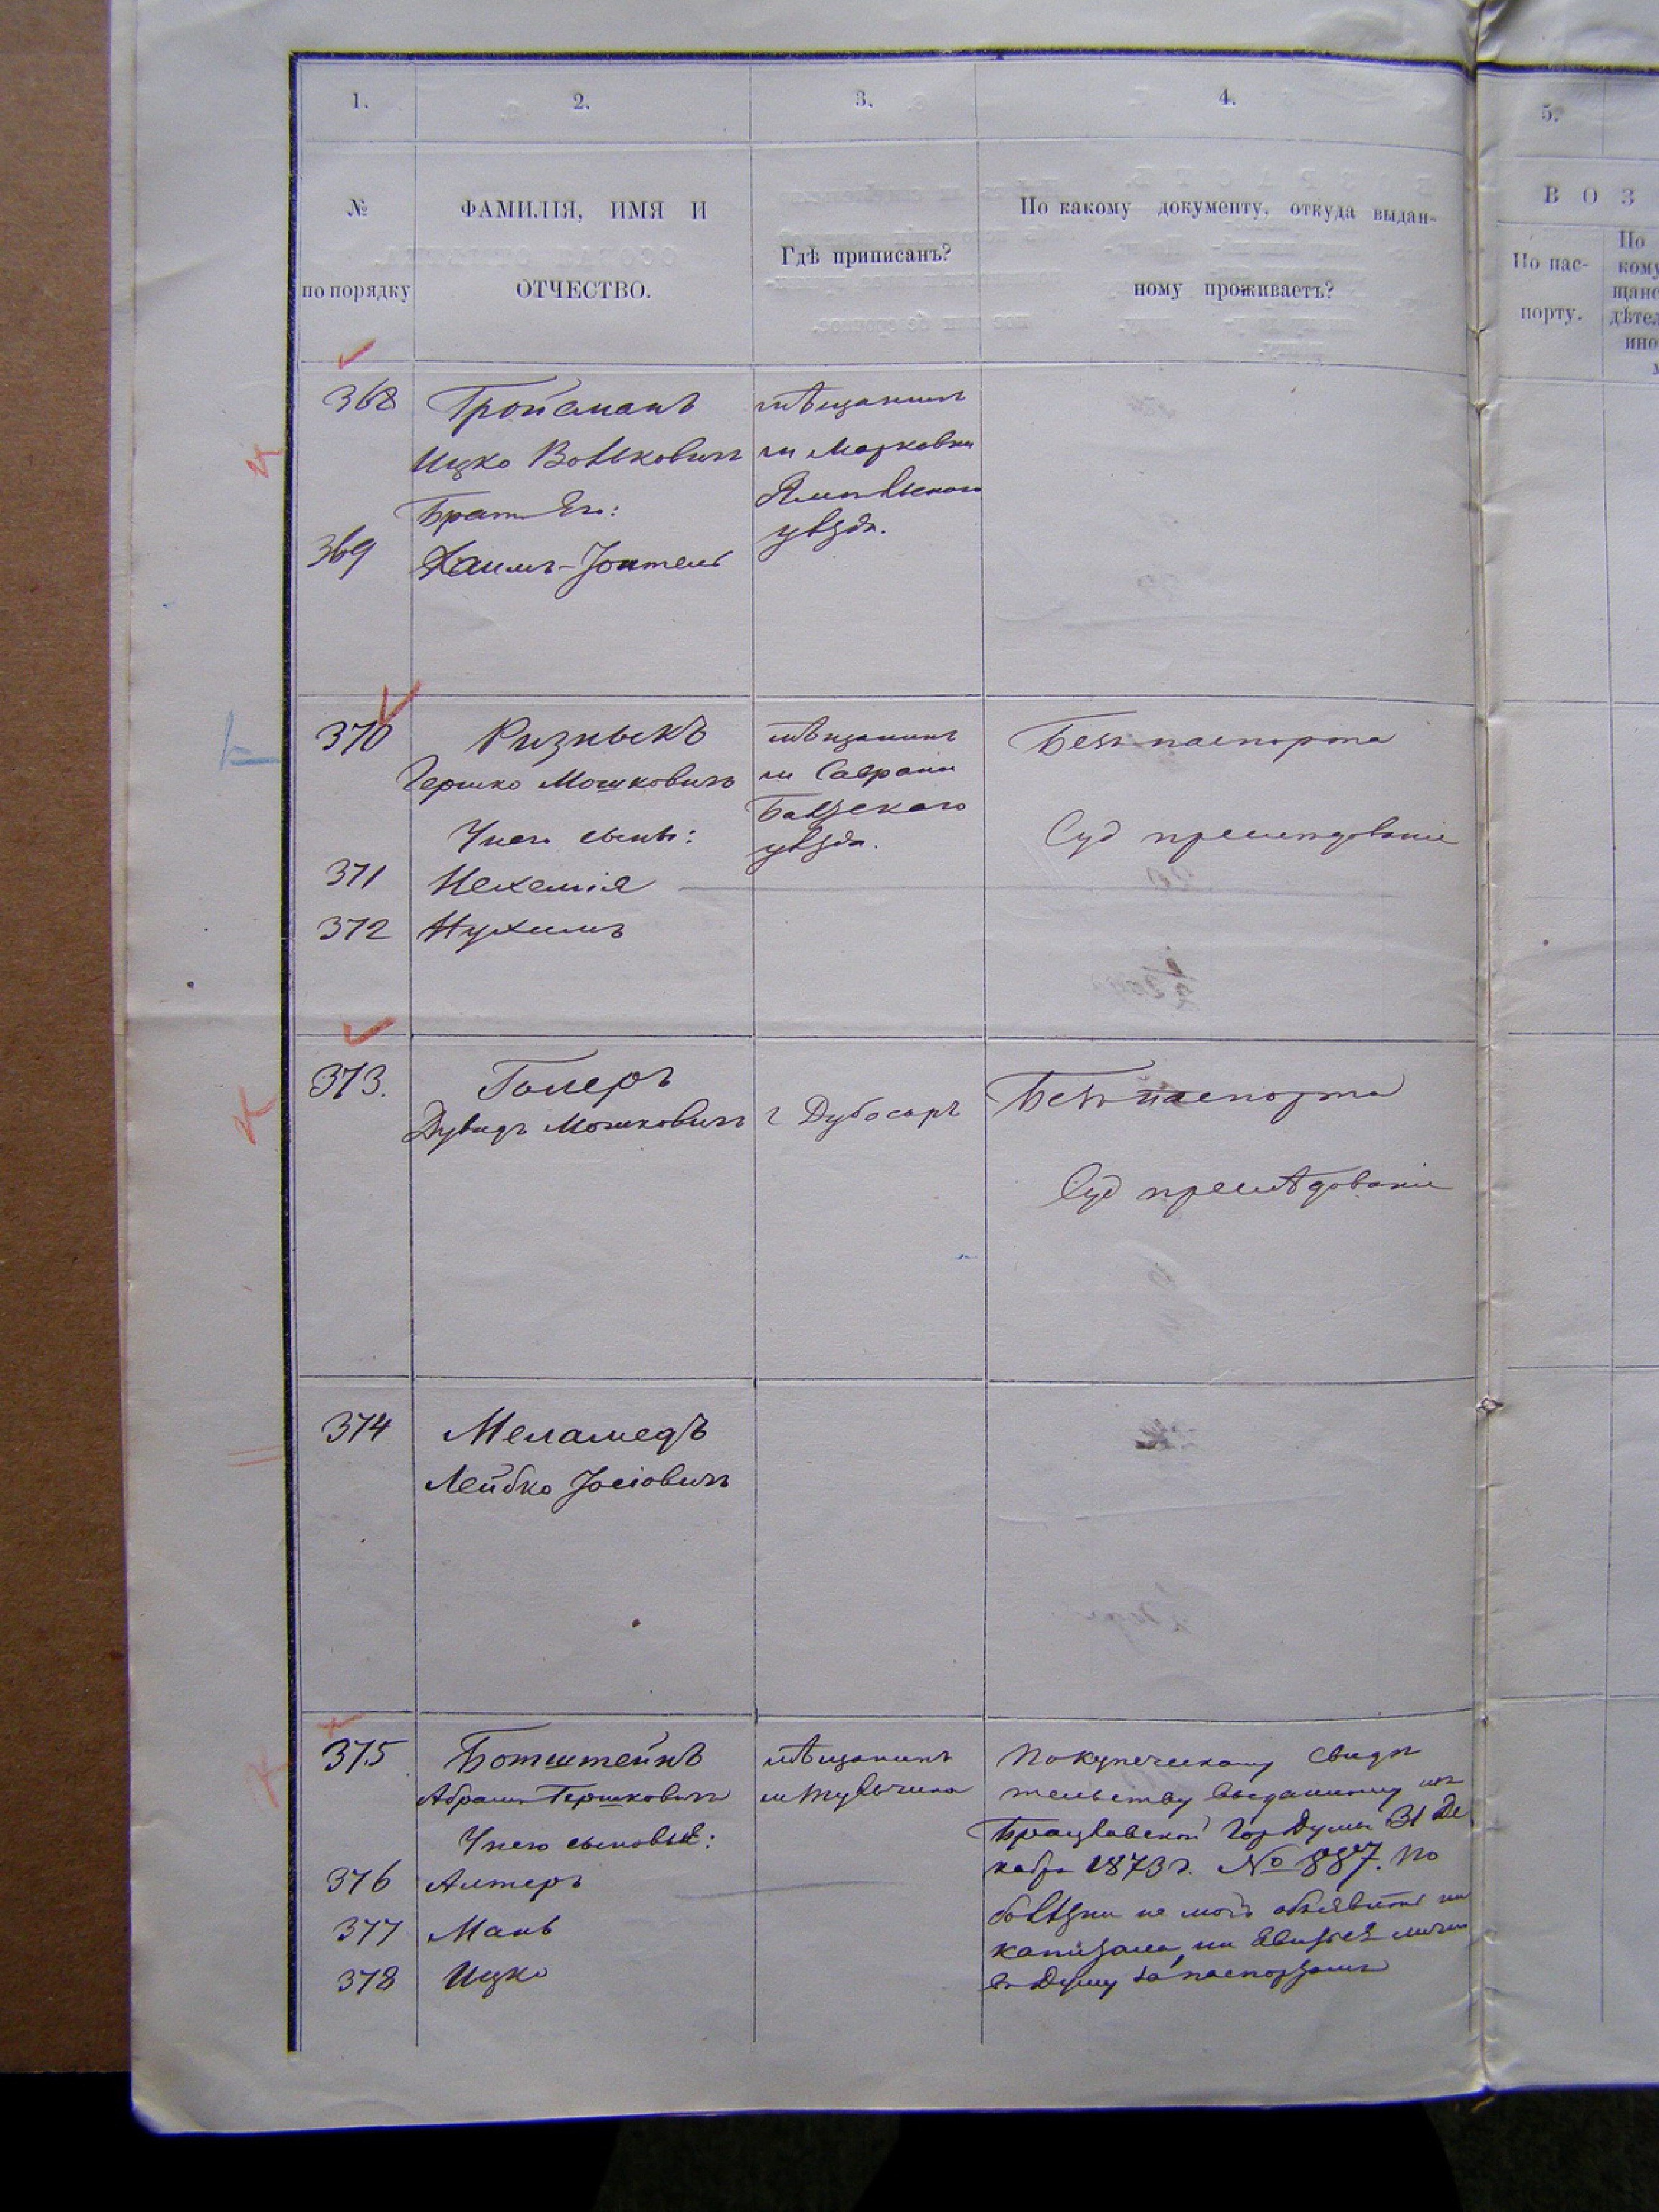 1. 2. 3. 4. 5.
№ по порядку
ФАМИЛІЯ, ИМЯ И
ОТЧЕСТВО.
Гдѣ приписанъ?
По какому документу, откуда выдан-
ному проживаетъ?
В О З
По пас-
порту.
По
кому
щанс
дѣтел
ино
368 Тройсманъ
Ицко Волькович
Брат Его:
369 Хаимъ-Іоители
мѣщанинъ
м Марковки
Ямпольского
уѣзда.
370 Ризныкъ
Гершко Мошковичъ
У него сынъ:
371 Нехемія
372 Нухимъ
мѣщанинъ
м Саврани
Балтскаго
уѣзда.
Безъ паспорта
Суд преследованіе
373. Голеръ
Дувидъ Мошковичъ
г Дубосаръ
Безъ паспорта
Суд преслѣдованіе
374 Меламедъ
Лейбко Іосіовичъ
375 Ботштейнъ
Абрамъ Гершковичъ
У него сыновья:
376 Алтеръ
377 Мань
378 Ицко
мѣщанинъ
м Тульчина
По купеческому свидѣ
тельству выданному изъ
Брацлавской Гор Думы 31 Де
кабря 1873 г. № 887. По
болѣзни не могъ объявить ни
капитала, ни явиться лично
въ Думу за паспортомъ